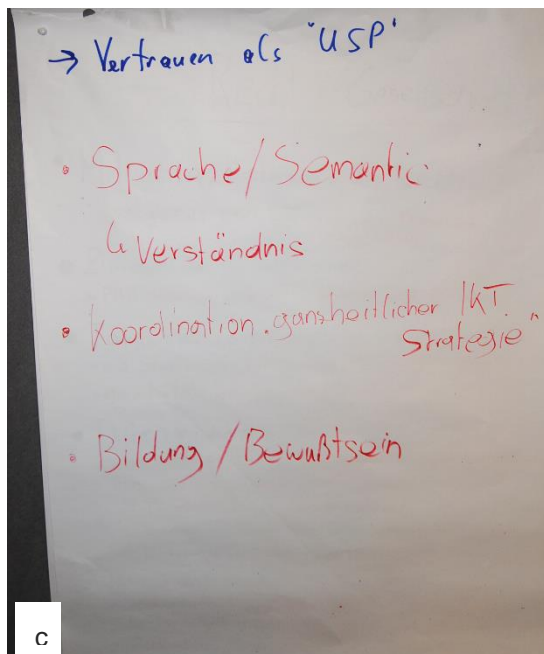 → Vertrauen als "USP"
• Sprache/Semantic
↳ Verständnis
• Koordination „gansheitlicher IKT.
Strategie"
• Bildung/Bewußtsein
C